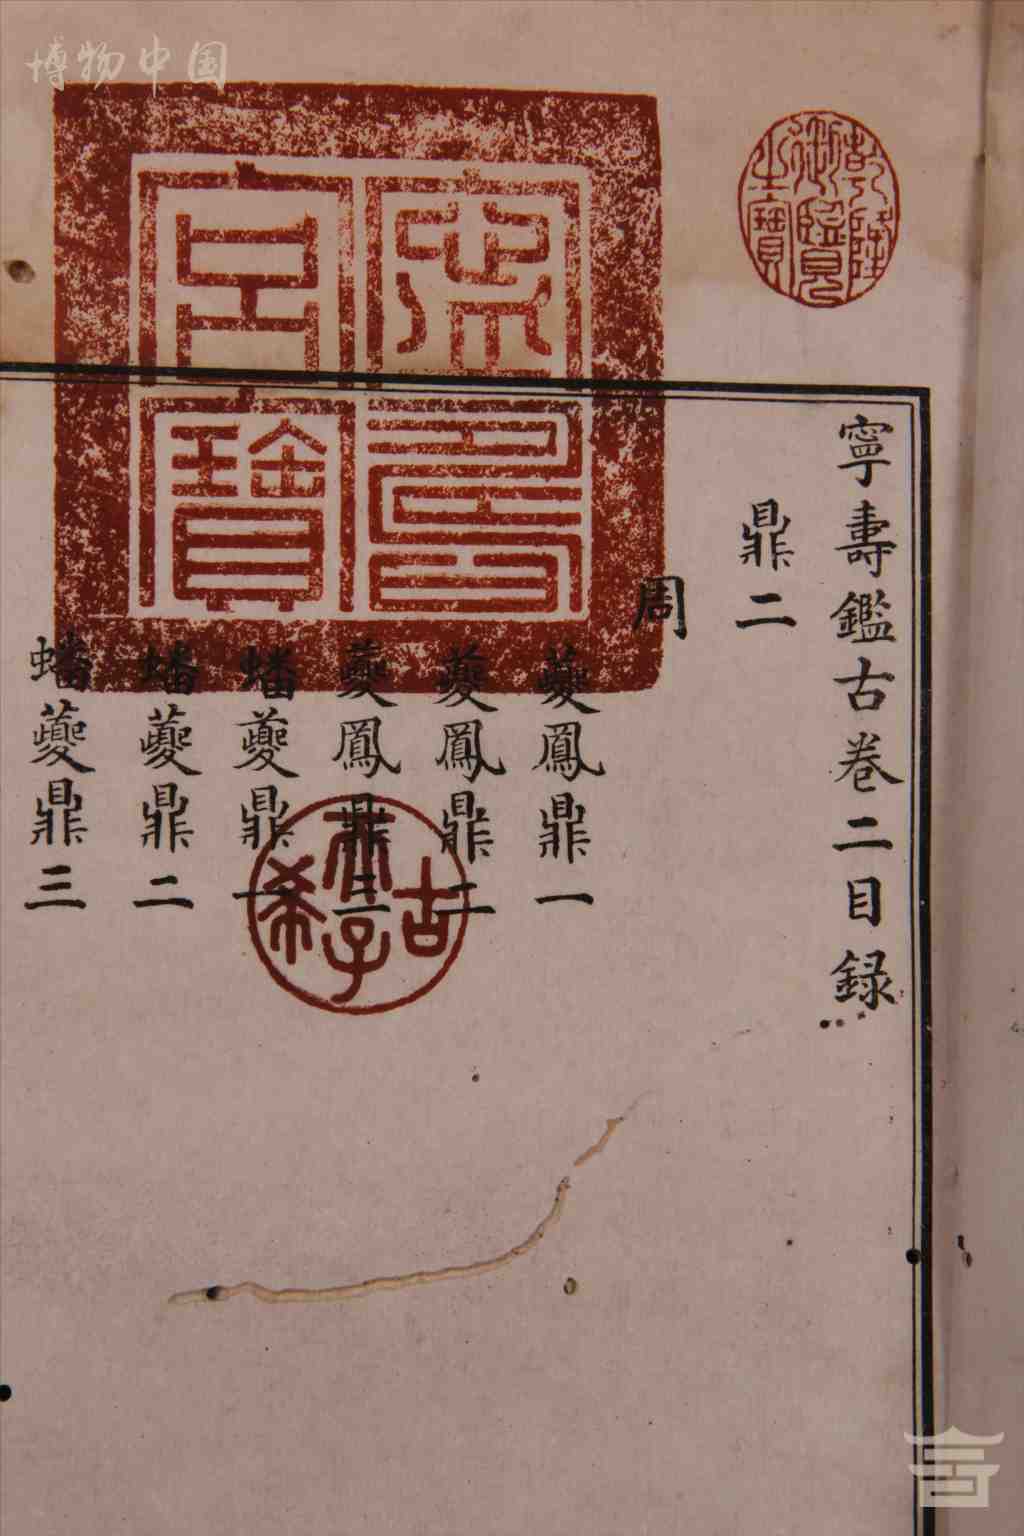 寧壽鑑古卷二目録
鼎二
周
夔鳳鼎一
夔鳳鼎二
夔鳳鼎三
蟠夔鼎一
蟠夔鼎二
蟠夔鼎三
乾隆御覽之寶
寧壽宮寶
古希天子
博物中国